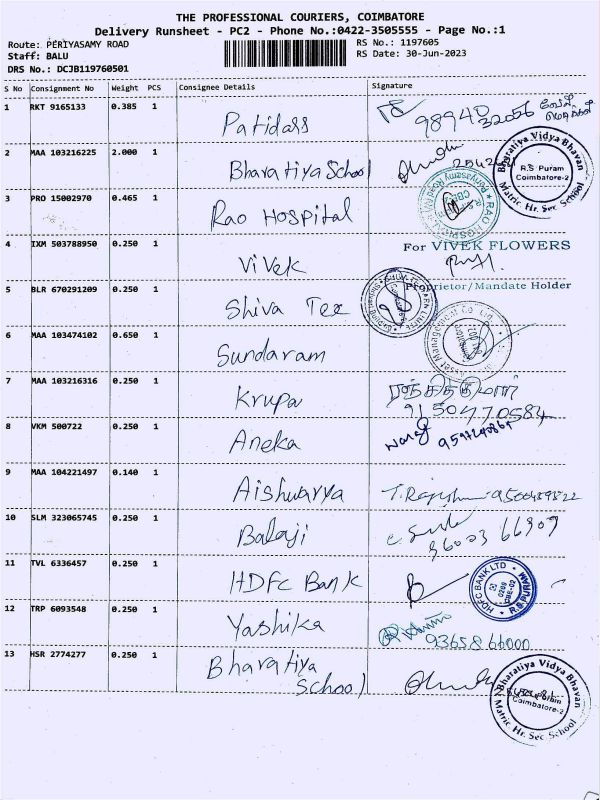 THE PROFESSIONAL COURIERS, COIMBATORE
Delivery Runsheet - PC2 - Phone No.:0422-3505555 - Page No.:1
Route: PERIYASAMY ROAD
RS No.: 1197605
Staff: BALU
RS Date: 30-Jun-2023
DRS No.: DCJB119760501
S No Consignment No Weight PCS Consignee Details Signature
1 RKT 9165133 0.385 1 Patidass 98940 32056
2 MAA 103216225 2.000 1 Bharatiya School
Bharatiya Vidya Bhavan
R.S. Puram
Coimbatore-2
Matric Hr. Sec School
3 PRO 15002970 0.465 1 Rao Hospital
RAO HOSPITAL
4 IXM 503788950 0.250 1 Vivek
For VIVEK FLOWERS
Proprietor/Mandate Holder
5 BLR 670291209 0.250 1 Shiva Tex
6 MAA 103474102 0.650 1 Sundaram
Asset Management Co.
7 MAA 103216316 0.250 1 Krupa ரஞ்சித்குமார்
9150470584
8 VKM 500722 0.250 1 Aneka
9 MAA 104221497 0.140 1 Aishwarya
10 SLM 323065745 0.250 1 Balaji
96003 66909
11 TVL 6336457 0.250 1 HDFC Bank
HDFC BANK LTD
R.S. PURAM
12 TRP 6093548 0.250 1 Yashika
9365866000
13 HSR 2774277 0.250 1 Bharatiya
School
Bharatiya Vidya Bhavan
Coimbatore-2
Matric Hr. Sec School